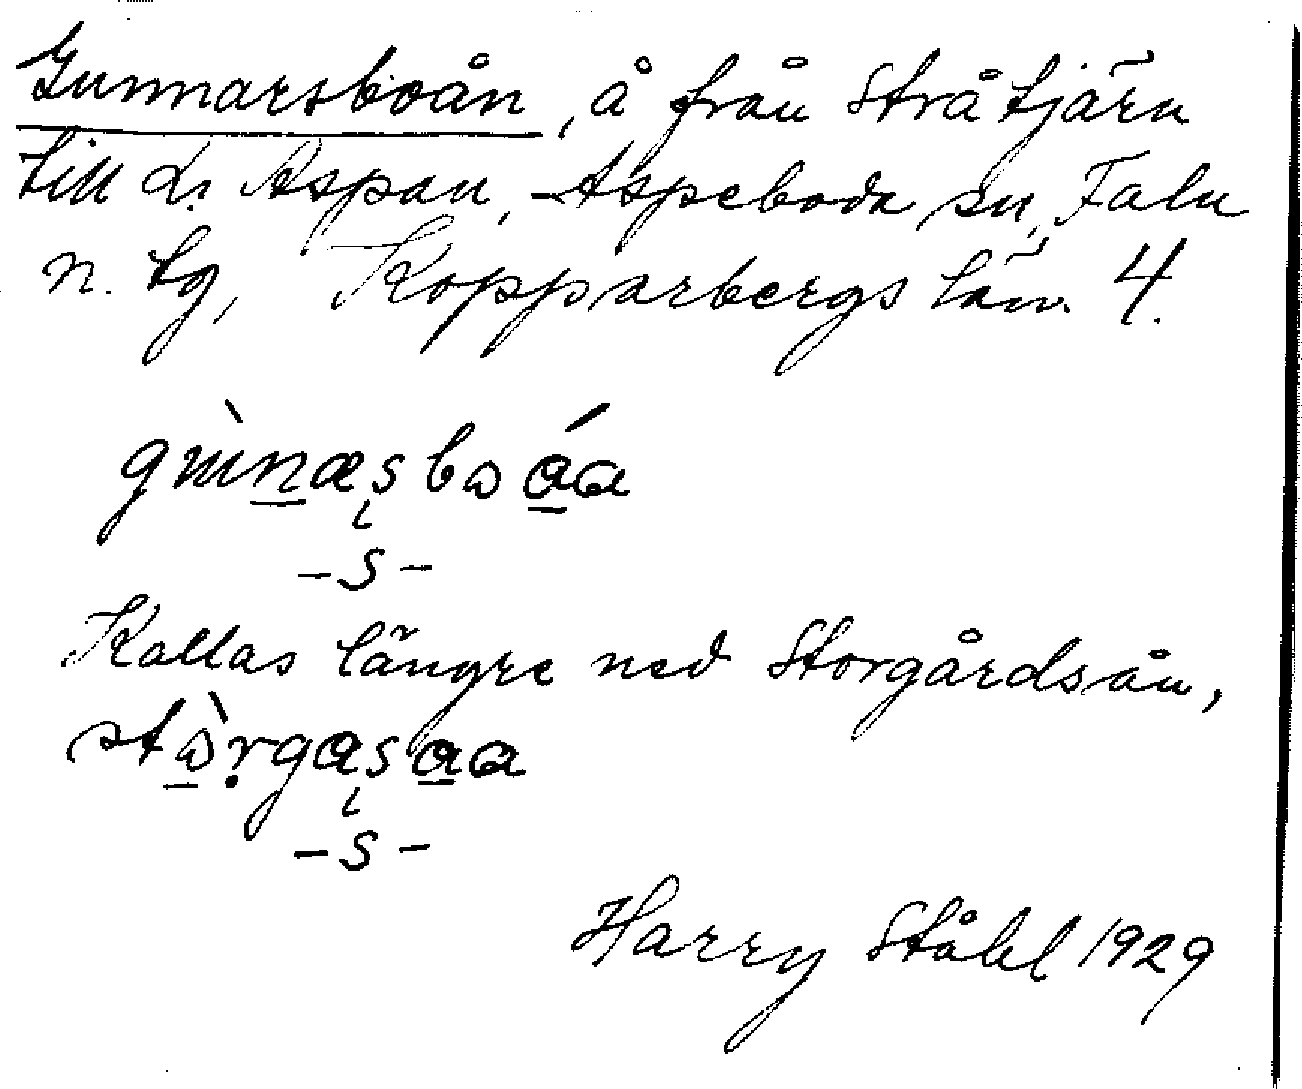 Gunnarsboån, å från Stråtjärn
till L. Aspan, Aspeboda sn, Falu
n. tg, Kopparbergs län. 4.
gɯ̀n̲æşbɷɑ̲́ɑ
-s-
Kallas längre ned Storgårdsån,
stɷ̲̀ṛgɑşɑ̲ɑ
-s-
Harry Ståhl 1929